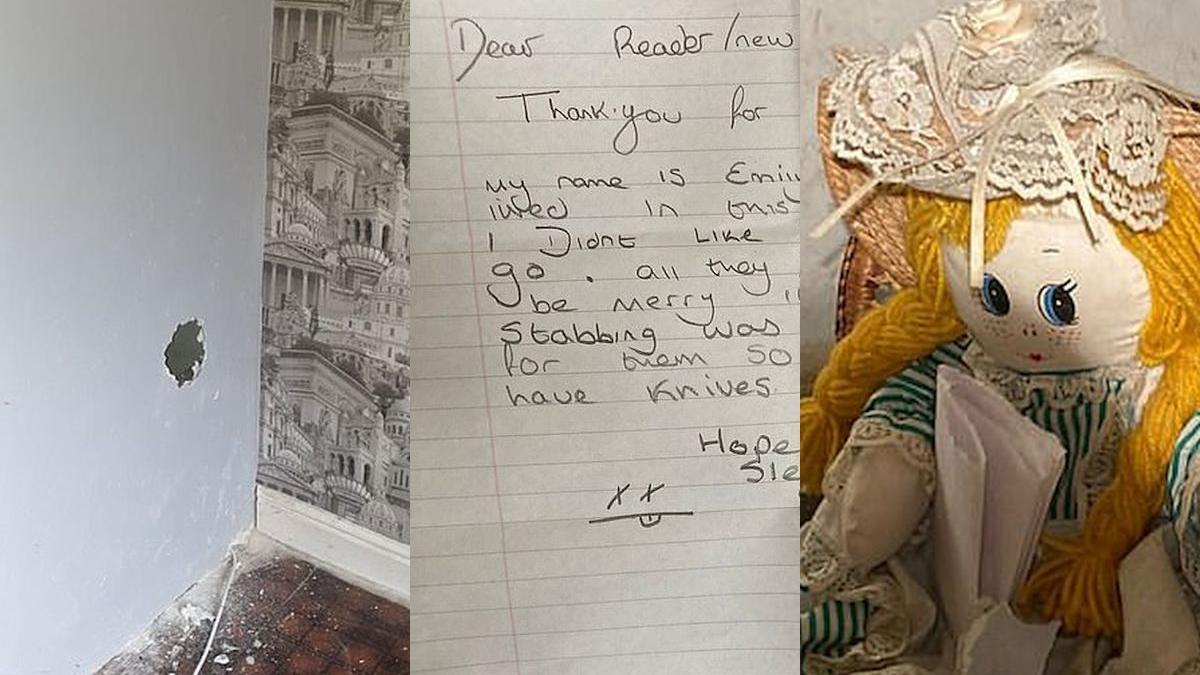 Dear Reader/new
Thank-you for
my name is
lived in this
I Didnt Like
go. all they
be merry
Stabbing was
for them so
have Knives.
Hope